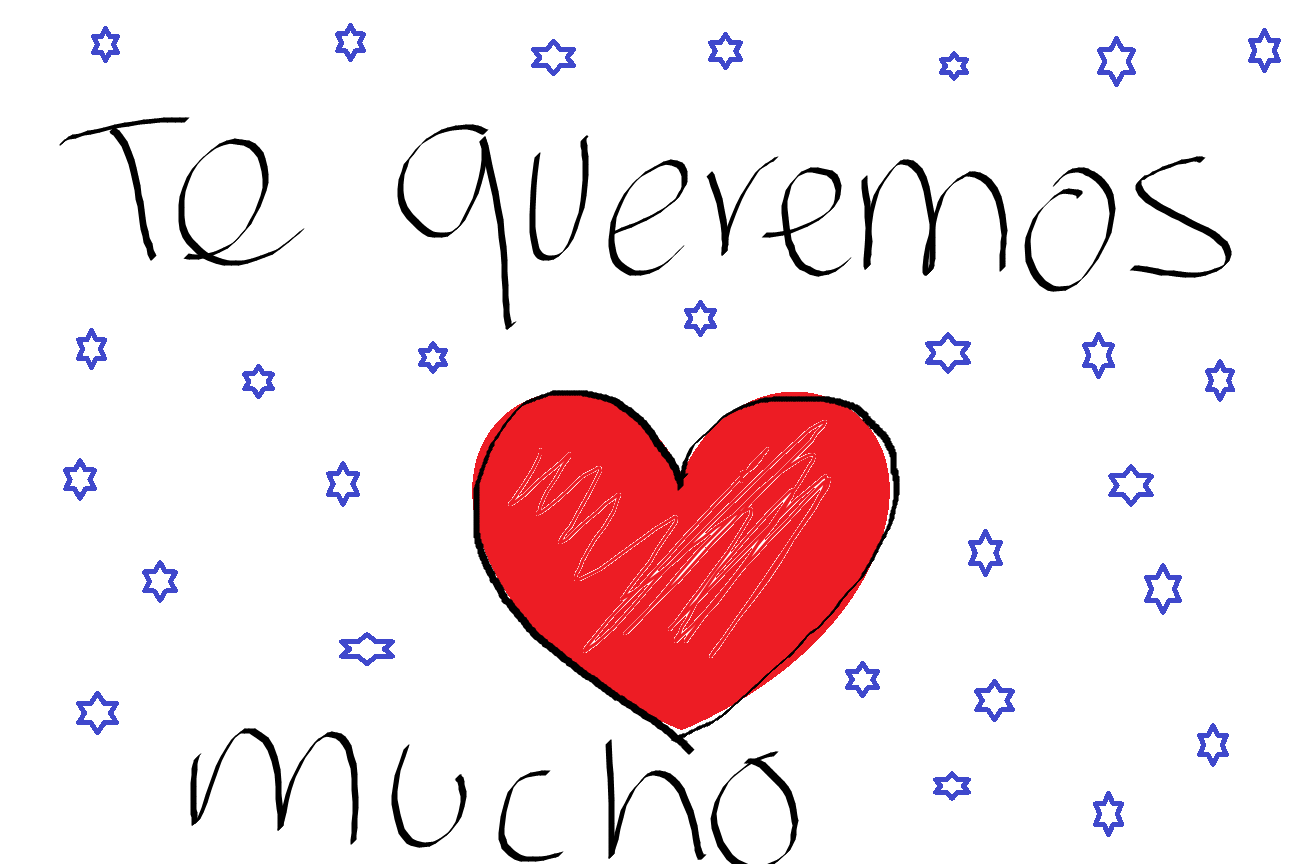 Te queremos
mucho